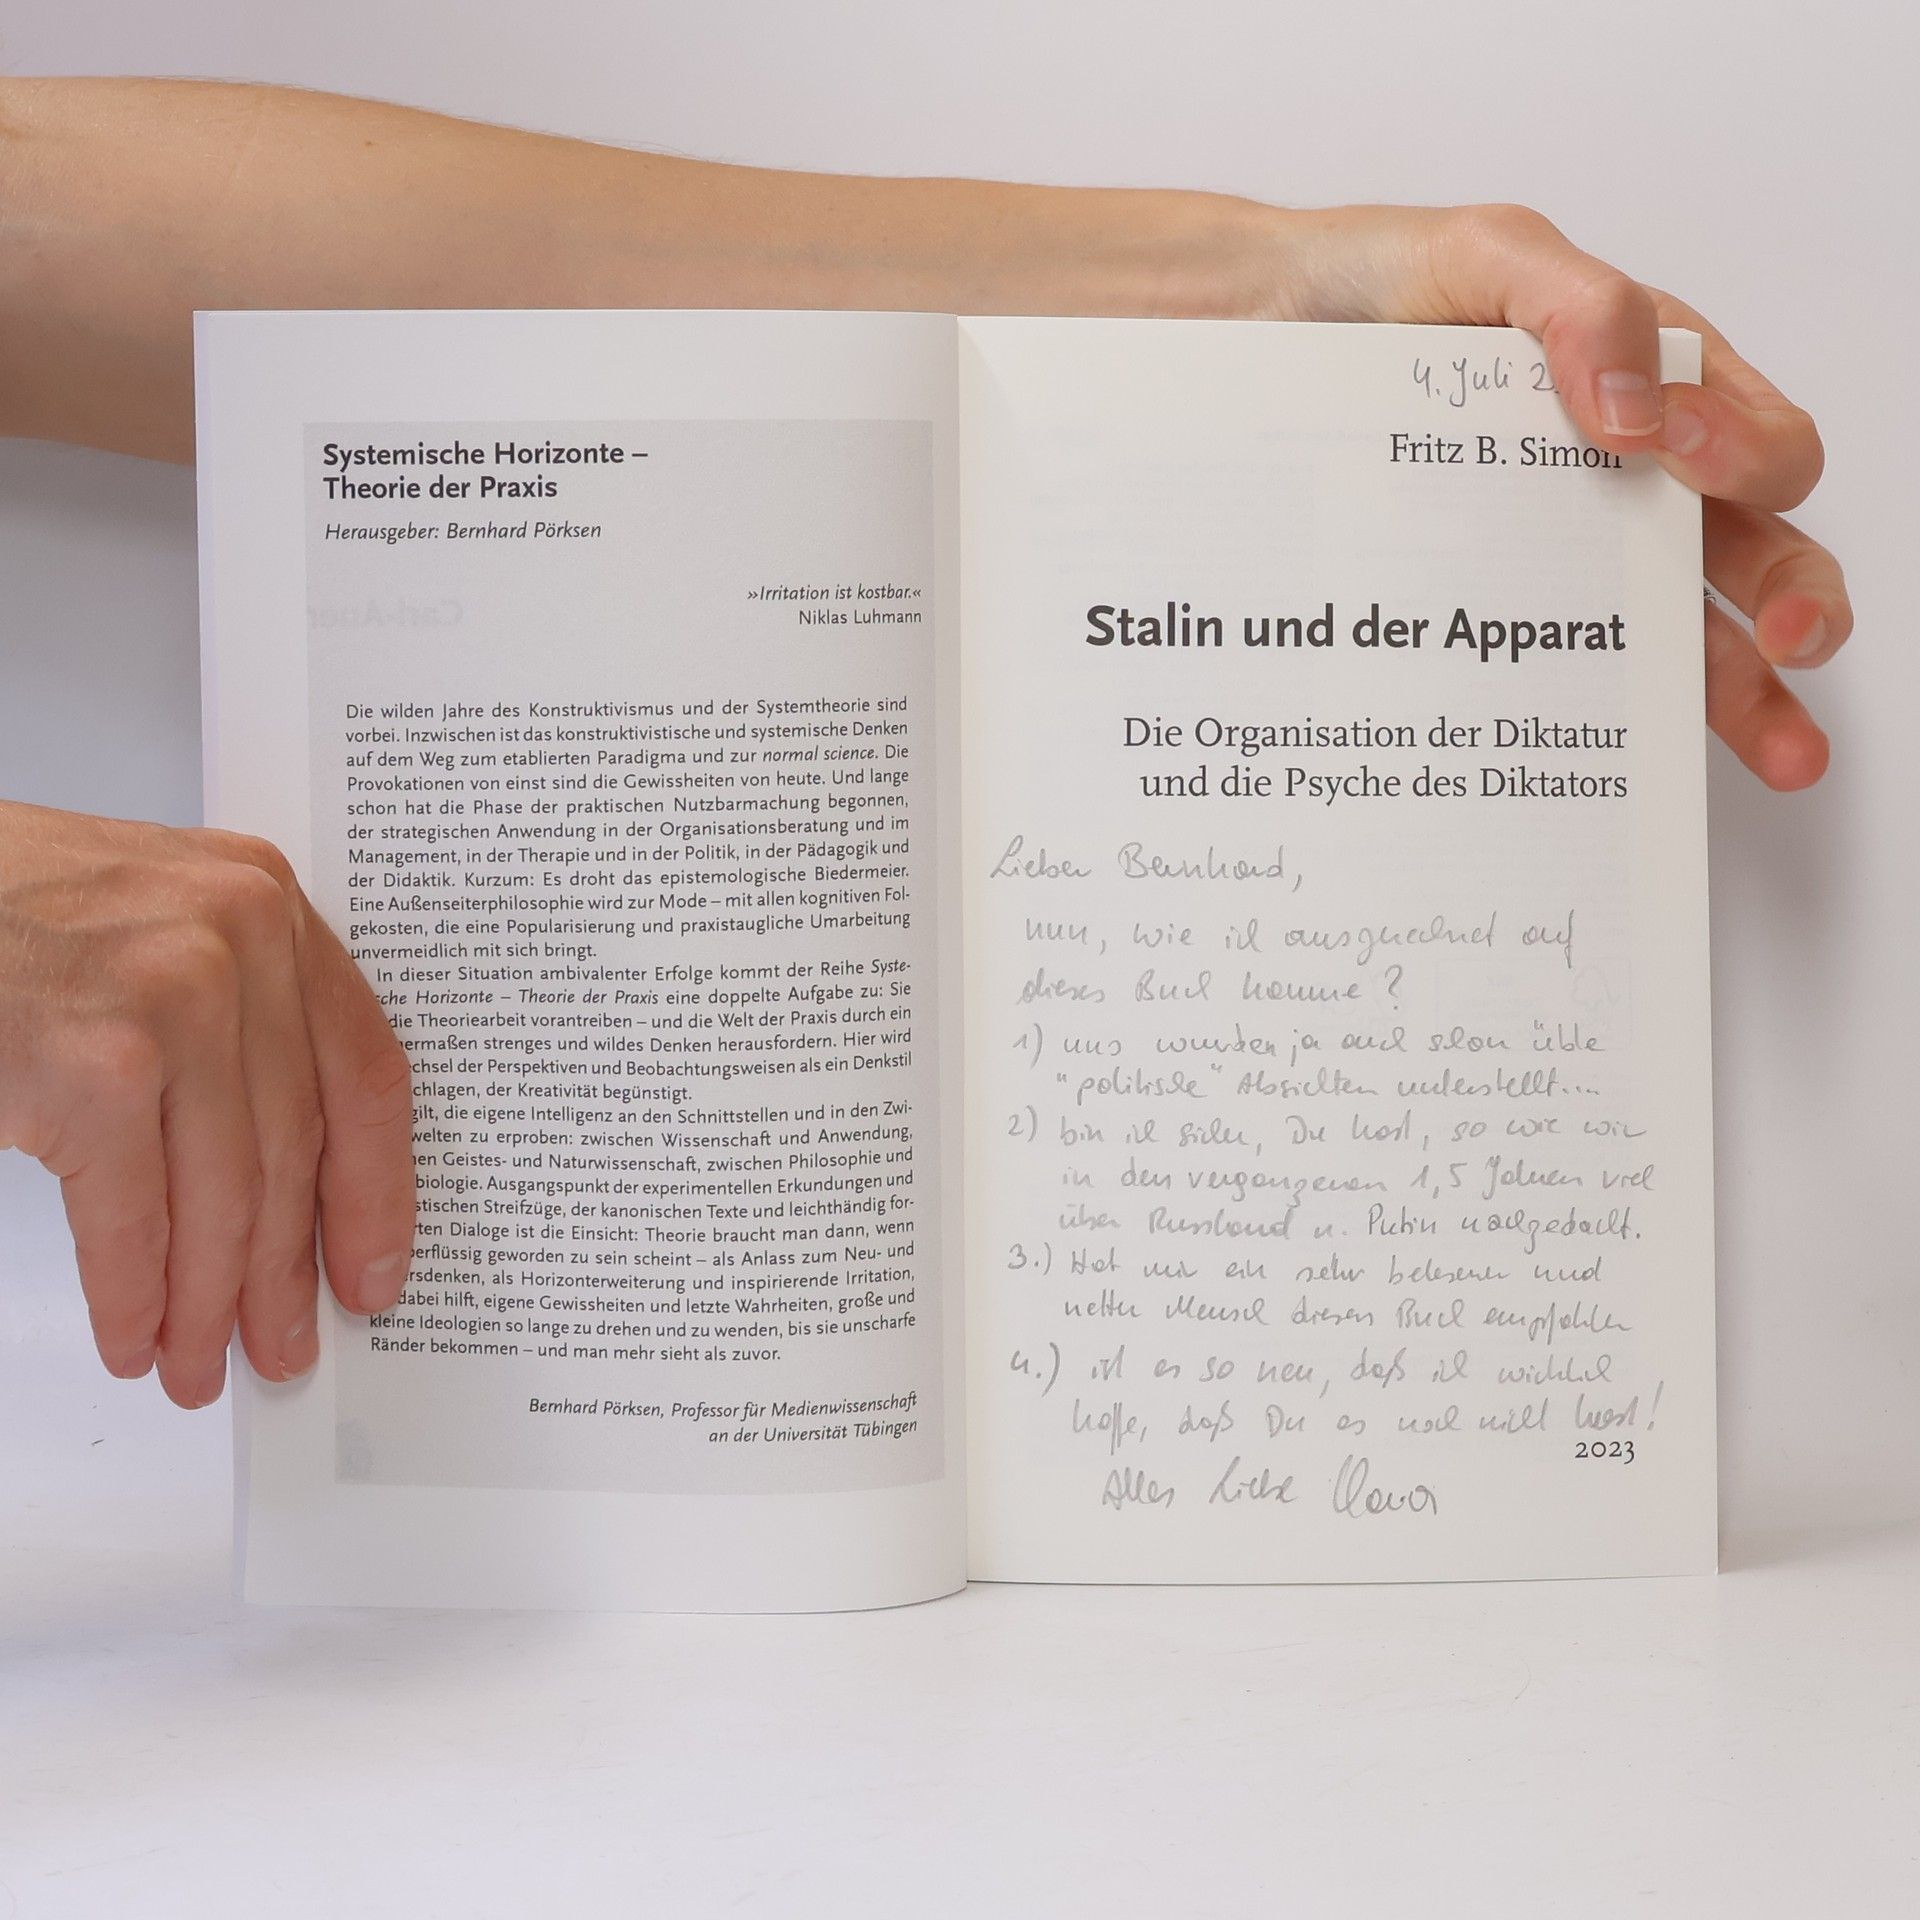 Systemische Horizonte –
Theorie der Praxis
Herausgeber: Bernhard Pörksen
»Irritation ist kostbar.«
Niklas Luhmann
Die wilden Jahre des Konstruktivismus und der Systemtheorie sind
vorbei. Inzwischen ist das konstruktivistische und systemische Denken
auf dem Weg zum etablierten Paradigma und zur normal science. Die
Provokationen von einst sind die Gewissheiten von heute. Und lange
schon hat die Phase der praktischen Nutzbarmachung begonnen,
der strategischen Anwendung in der Organisationsberatung und im
Management, in der Therapie und in der Politik, in der Pädagogik und
der Didaktik. Kurzum: Es droht das epistemologische Biedermeier.
Eine Außenseiterphilosophie wird zur Mode – mit allen kognitiven Fol-
gekosten, die eine Popularisierung und praxistaugliche Umarbeitung
unvermeidlich mit sich bringt.
In dieser Situation ambivalenter Erfolge kommt der Reihe Syste-
sche Horizonte – Theorie der Praxis eine doppelte Aufgabe zu: Sie
die Theoriearbeit vorantreiben – und die Welt der Praxis durch ein
ermaßen strenges und wildes Denken herausfordern. Hier wird
chsel der Perspektiven und Beobachtungsweisen als ein Denkstil
chlagen, der Kreativität begünstigt.
gilt, die eigene Intelligenz an den Schnittstellen und in den Zwi-
welten zu erproben: zwischen Wissenschaft und Anwendung,
en Geistes- und Naturwissenschaft, zwischen Philosophie und
biologie. Ausgangspunkt der experimentellen Erkundungen und
stischen Streifzüge, der kanonischen Texte und leichthändig for-
rten Dialoge ist die Einsicht: Theorie braucht man dann, wenn
erflüssig geworden zu sein scheint – als Anlass zum Neu- und
rsdenken, als Horizonterweiterung und inspirierende Irritation,
dabei hilft, eigene Gewissheiten und letzte Wahrheiten, große und
kleine Ideologien so lange zu drehen und zu wenden, bis sie unscharfe
Ränder bekommen – und man mehr sieht als zuvor.
Bernhard Pörksen, Professor für Medienwissenschaft
an der Universität Tübingen
4. Juli 2
Fritz B. Simon
Stalin und der Apparat
Die Organisation der Diktatur
und die Psyche des Diktators
Lieber Bernhard,
nun, wie ich ausgerechnet auf
dieses Buch komme?
1) uns wurden ja auch schon üble
"politische" Absichten unterstellt...
2) bin ich sicher, Du hast, so wie wir
in den vergangenen 1,5 Jahren viel
über Russland u. Putin nachgedacht.
3.) Hat mir ein sehr belesener und
netter Mensch dieses Buch empfohlen
4.) ist es so neu, daß ich wirklich
hoffe, daß Du es noch nicht hast!
2023
Alles Liebe